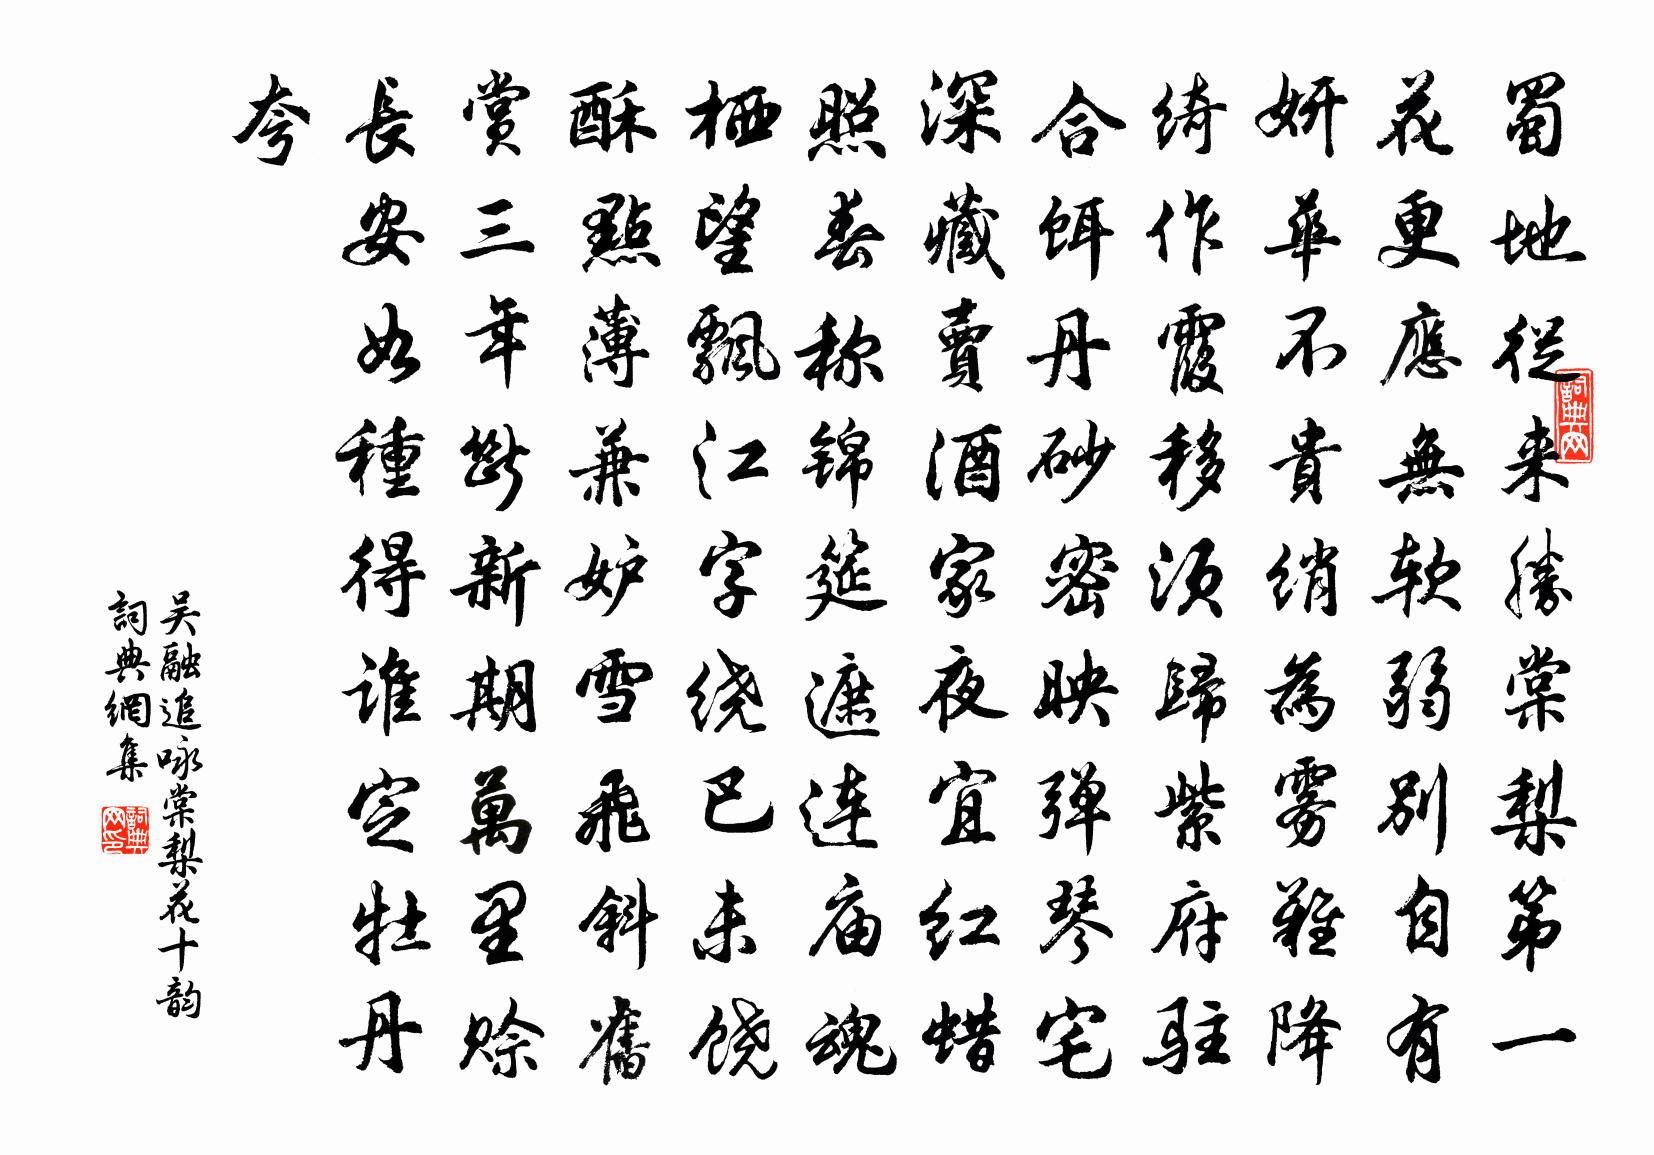 蜀地從来勝棠梨第一
花更應無軟弱別自有
妍華不貴綃為雾難降
綺作霞移須歸紫府駐
合餌丹砂密映弹琴宅
深藏賣酒家夜宜红蜡
照春称锦筵遮连庙魂
栖望飄江字绕巴未饶
酥點薄兼妒雪飛斜舊
賞三年斷新期萬里赊
長安如種得谁定牡丹
夸
吴融追咏棠梨花十韵
詞典網集
詞典网
詞典网印